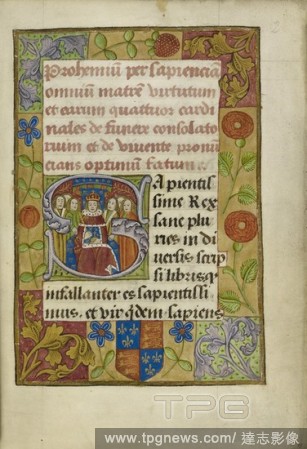 Prohemium per sapienciā
omnium matrē virtutum
et earum quattuor cardi
nales de funere consolato
rium et de vivente pronū
cians optimum fatum.
Sapientis
sime Rex
sane plu
ries in di
versis scrip
si libris q
infallanter es sapientissi
mus, et vir idem sapiens
TPG
www.tpgnews.com/ 達志影像